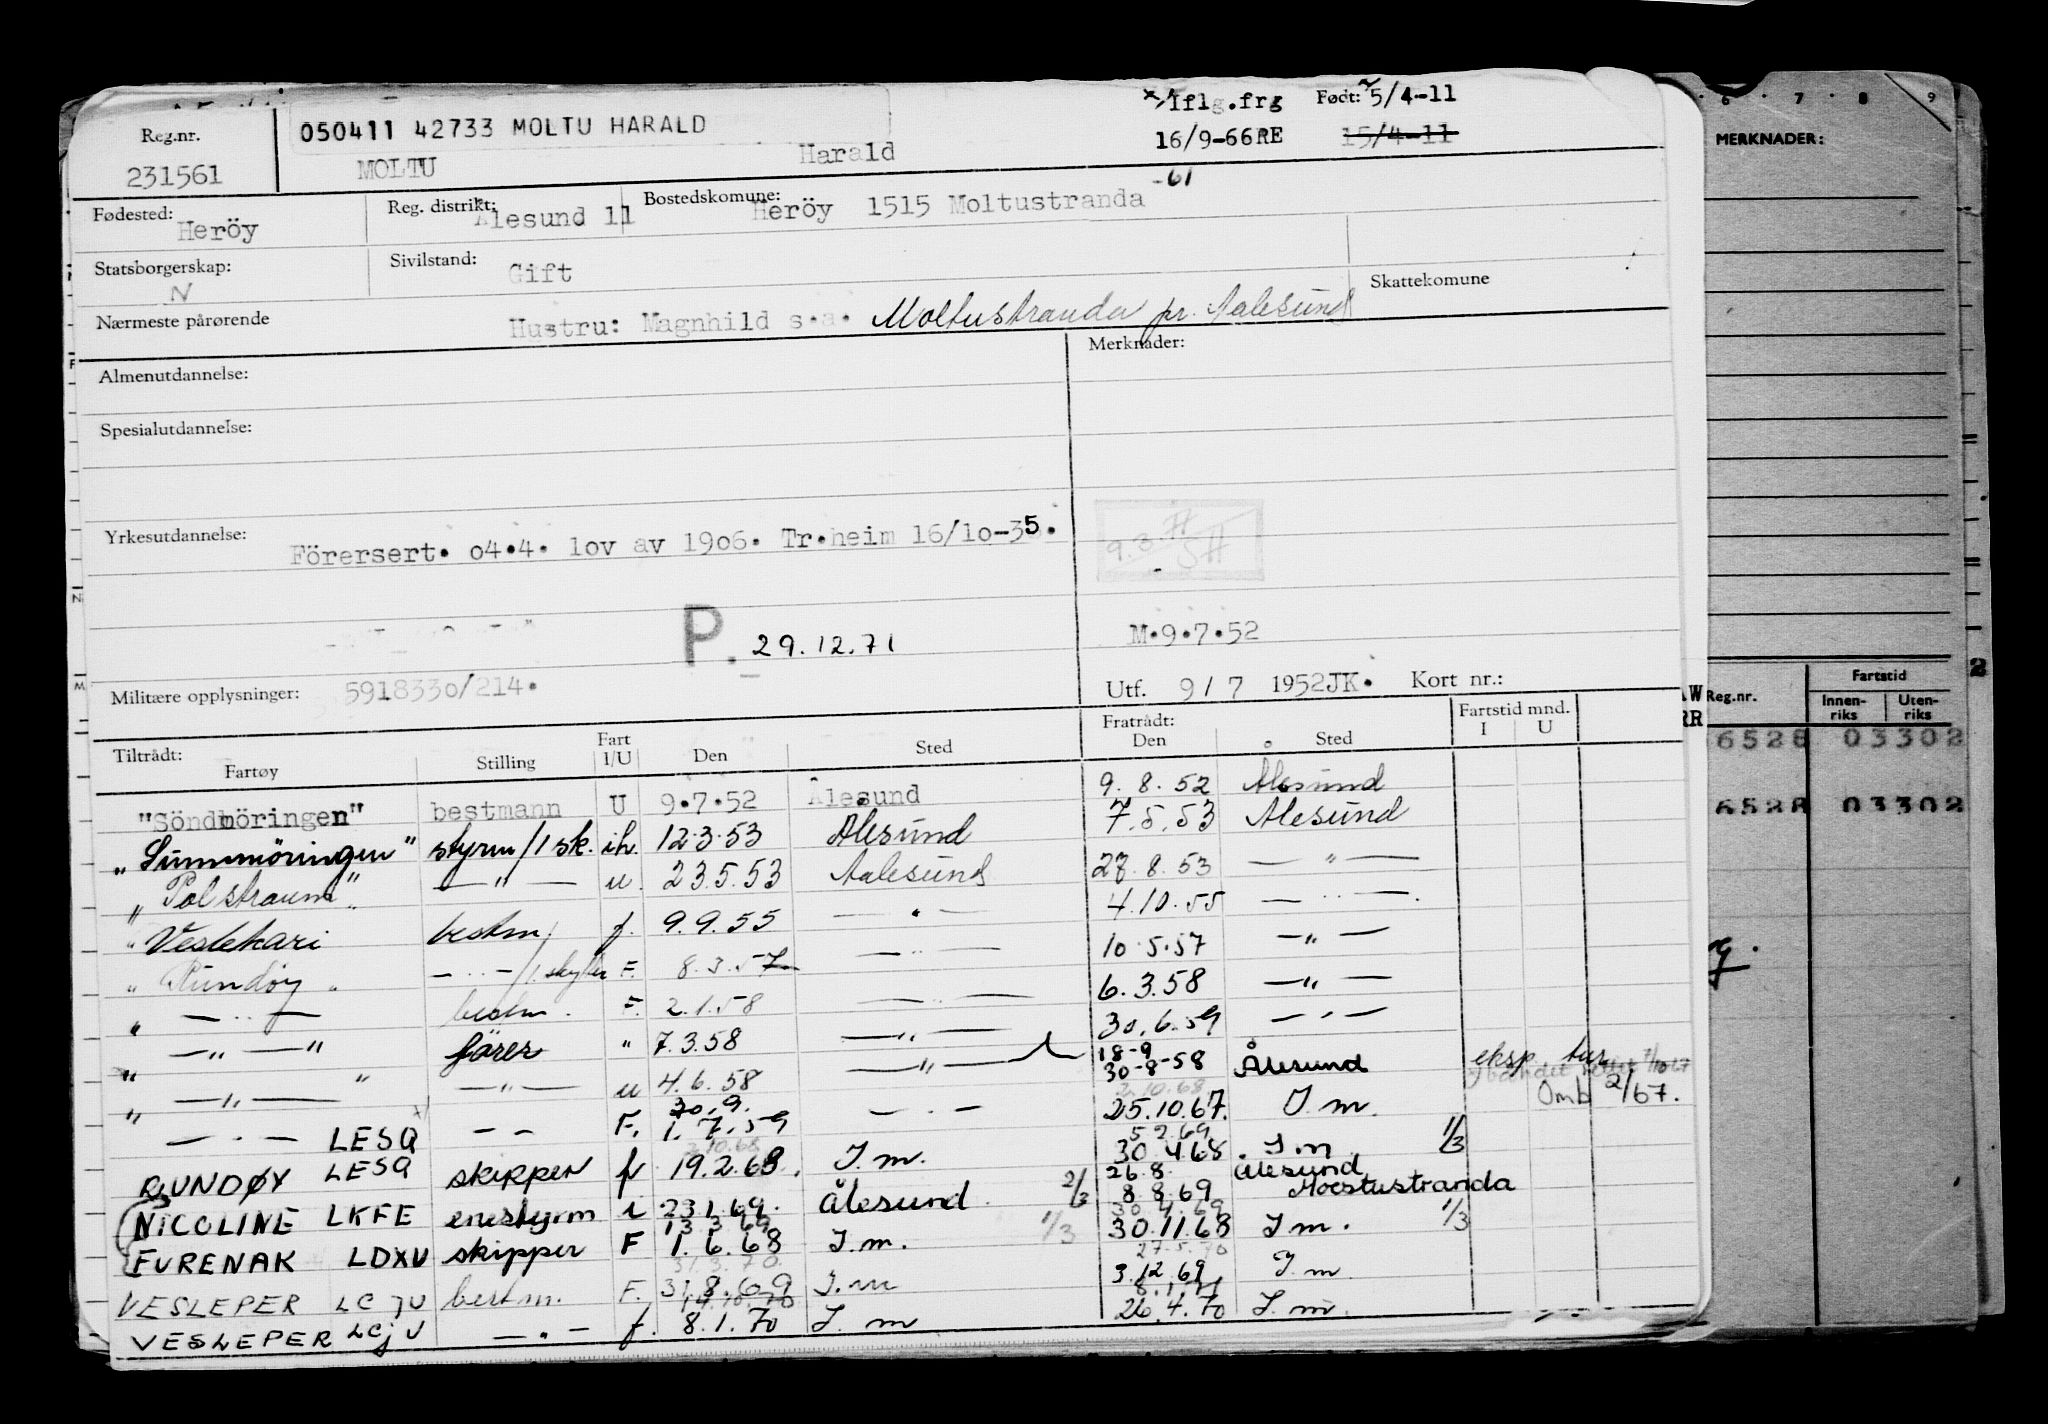 Reg.nr. 050411 42733 MOLTU HARALD x/Iflg.frg Født: 5/4-11
231561 MOLTU Harald 16/9-66RE 15/4-11
Fødested: Heröy Reg. distrikt: Ålesund 11 Bostedskomune: Heröy 1515 Moltustranda -61
Statsborgerskap: N Sivilstand: Gift Skattekomune
Nærmeste pårørende Hustru: Magnhild s.a. Moltustranda pr. Aalesund
Almenutdannelse: Merknader:
Spesialutdannelse:
Yrkesutdannelse: Förersert. o4.4. lov av 1906. Tr.heim 16/10-35.
P. 29.12.71 M.9.7.52
Militære opplysninger: 5918330/214. Utf. 9/7 1952JK. Kort nr.:
Tiltrådt: Fartøy Stilling Fart I/U Den Sted Fratrådt: Den Sted Fartstid mnd. I U
"Söndmöringen" bestmann U 9.7.52 Ålesund 9.8.52 Ålesund
"Sunnmöringen" styrm/1 sk. ih. 12.3.53 Ålesund 7.5.53 Ålesund
"Polstraum" — " — u. 23.5.53 Aalesund 27.8.53 — " —
"Veslekari bestm f. 9.9.55 — " — 4.10.55 — " —
"Rundöy" — " — /1. skytter F. 8.3.57 — " — 10.5.57 — " —
" — " — bestm. F. 2.1.58 — " — 6.3.58 — " —
" — " — " förer " 7.3.58 — " — 30.6.59 — " —
" — " — " — " — u 4.6.58 — " — 18-9 30-8-58 Ålesund eksp. tur
— " — LESQ — — F. 30.9. 1.7.59 — . — 25.10.67. I.m. Omb 2/67.
RUNDØY LESQ skipper f 19.2.68. I.m. 30.4.68. I.m 1/3
NICOLINE LKFE enestyrm i 23.1.69. Ålesund 2/3 26.8. 8.8.69 Ålesund Moltustranda
FURENAK LDXU skipper F 1.6.68 I.m. 1/3 30.11.68 I.m. 1/3
VESLEPER LCJU bestm. F. 31.8.69 I.m 3.12.69 I.m
VESLEPER LCJU — " — f. 8.1.70 I.m 26.4.70 I.m.
6 7 8 9
MERKNADER:
Reg.nr. Fartstid
Innen-riks Uten-riks
6528 03302
6528 03302
2